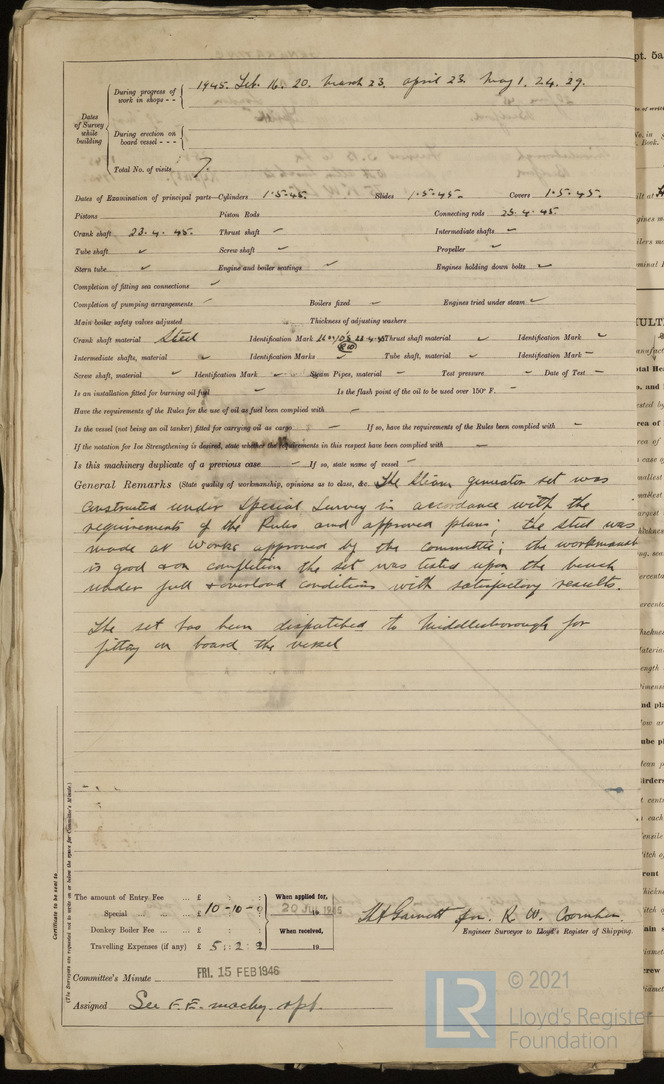 During progress of work in shops - - 1945. Feb. 16. 20. March 23. april 23. May 1. 24. 29.
Dates of Survey while building
During erection on board vessel - - -
Total No. of visits 7.
Dates of Examination of principal parts—Cylinders 1.5.45. Slides 1.5.45. Covers 1.5.45.
Pistons Piston Rods Connecting rods 23.4.45
Crank shaft 23.4.45. Thrust shaft Intermediate shafts
Tube shaft Screw shaft Propeller
Stern tube Engine and boiler seatings Engines holding down bolts
Completion of fitting sea connections
Completion of pumping arrangements Boilers fixed Engines tried under steam
Main boiler safety valves adjusted Thickness of adjusting washers
Crank shaft material Steel Identification Mark Thrust shaft material Identification Mark
Intermediate shafts, material Identification Marks Tube shaft, material Identification Mark
Screw shaft, material Identification Mark Steam Pipes, material Test pressure Date of Test
Is an installation fitted for burning oil fuel Is the flash point of the oil to be used over 150° F.
Have the requirements of the Rules for the use of oil as fuel been complied with
Is the vessel (not being an oil tanker) fitted for carrying oil as cargo If so, have the requirements of the Rules been complied with
If the notation for Ice Strengthening is desired, state whether the requirements in this respect have been complied with
Is this machinery duplicate of a previous case If so, state name of vessel
General Remarks (State quality of workmanship, opinions as to class, &c. The Steam generator set was
constructed under Special Survey in accordance with the
requirements of the Rules and approved plans; the steel was
made at Works approved by the Committee; the workmanship
is good & on completion the set was tested upon the bench
under full & overload conditions with satisfactory results.
The set has been dispatched to Middlesborough for
fitting on board the vessel
Certificate to be sent to
(The Surveyors are requested not to write on or below the space for Committee's Minute.)
The amount of Entry Fee ... £ : : When applied for,
Special ... ... £ 10-10-0 20 JUL 1945
Donkey Boiler Fee ... £ : : When received,
Travelling Expenses (if any) £ 5 : 2 : 2 19
for R. W.
Engineer Surveyor to Lloyd's Register of Shipping.
Committee's Minute FRI. 15 FEB 1946
Assigned See F.E. machy. rpt.
pt. 5a
LR
© 2021
Lloyd's Register
Foundation